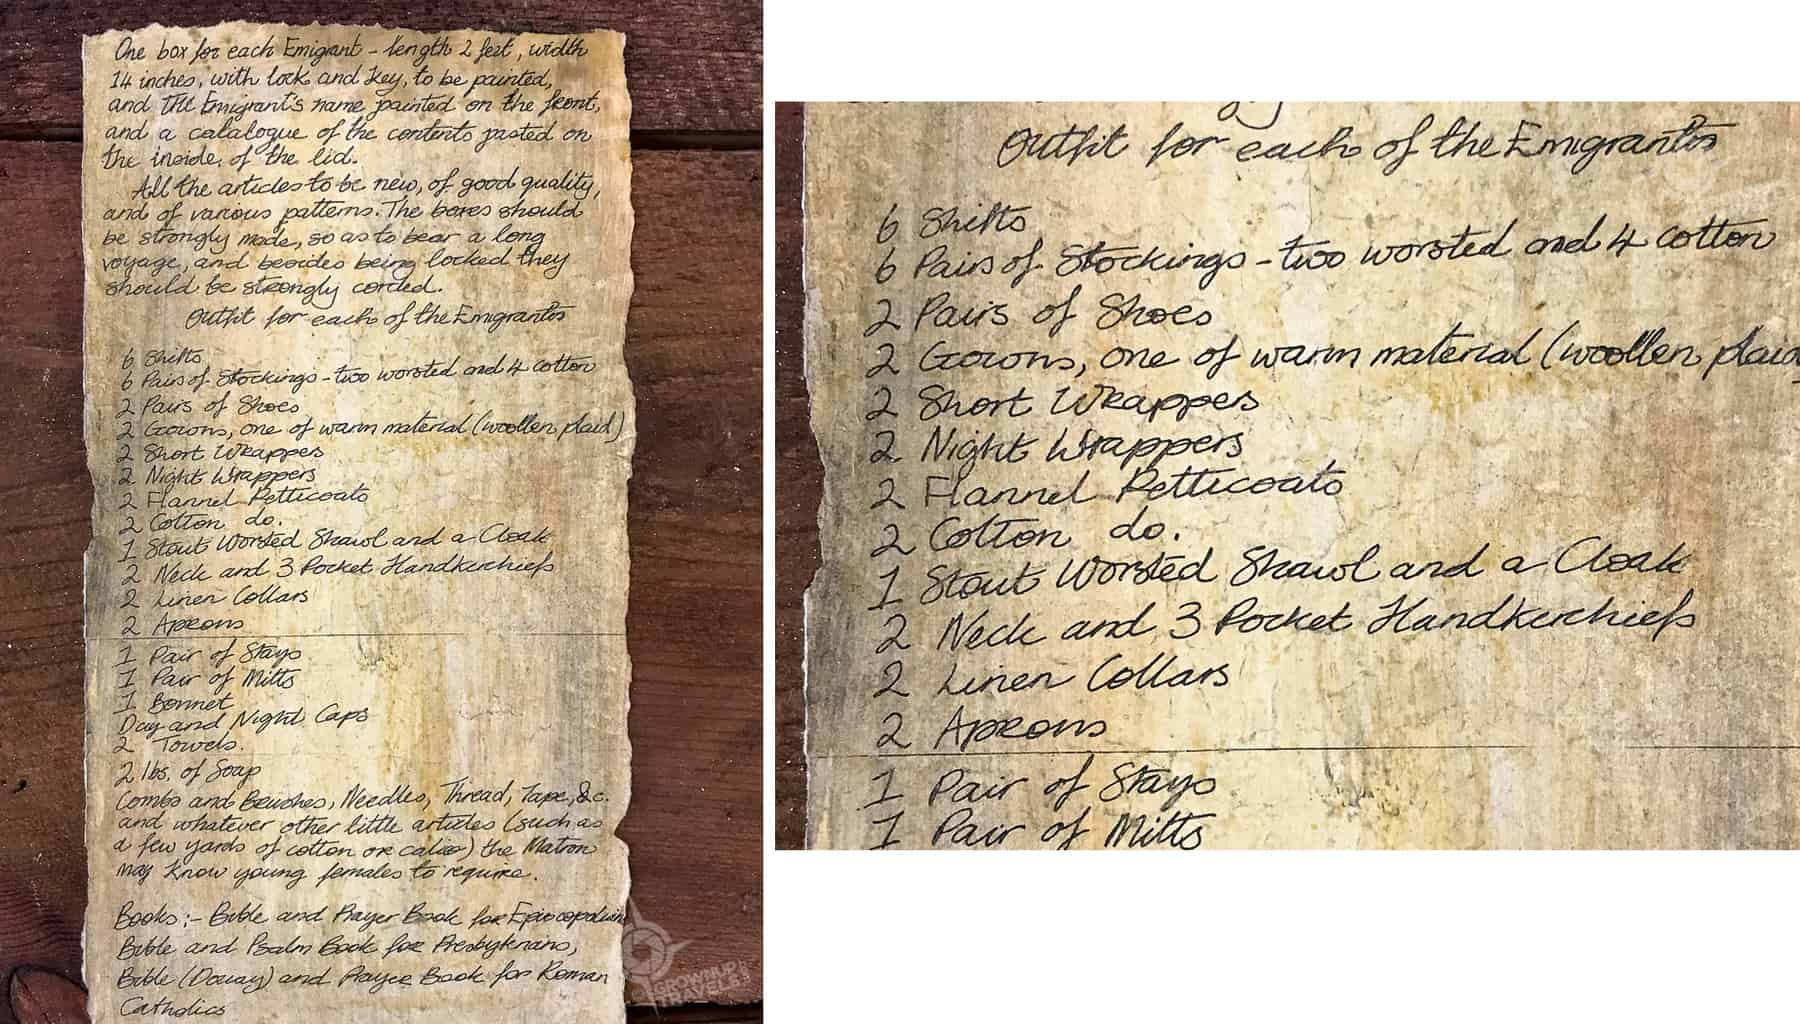 One box for each Emigrant - length 2 feet, width
14 inches, with lock and key, to be painted,
and the Emigrant's name painted on the front,
and a catalogue of the contents pasted on
the inside, of the lid.
All the articles to be new, of good quality,
and of various patterns. The boxes should
be strongly made, so as to bear a long
voyage, and besides being locked they
should be strongly corded.
Outfit for each of the Emigrants
6 Shifts
6 Pairs of Stockings - two worsted and 4 cotton
2 Pairs of Shoes
2 Gowns, one of warm material (woollen plaid)
2 Short Wrappers
2 Night Wrappers
2 Flannel Petticoats
2 Cotton do.
1 Stout Worsted Shawl and a Cloak
2 Neck and 3 Pocket Handkerchiefs
2 Linen Collars
2 Aprons
1 Pair of Stays
1 Pair of Mitts
1 Bonnet
Day and Night Caps
2 Towels.
2 lbs. of Soap
Combs and Brushes, Needles, Thread, Tape, &c.
and whatever other little articles (such as
a few yards of cotton or calico) the Matron
may know young females to require.
Books:- Bible and Prayer Book for Episcopalians
Bible and Psalm Book for Presbyterians,
Bible (Douay) and Prayer Book for Roman
Catholics
GROWNUP
TRAVELS
Outfit for each of the Emigrants
6 Shifts
6 Pairs of Stockings - two worsted and 4 cotton
2 Pairs of Shoes
2 Gowns, one of warm material (woollen plaid
2 Short Wrappers
2 Night Wrappers
2 Flannel Petticoats
2 Cotton do.
1 Stout Worsted Shawl and a Cloak
2 Neck and 3 Pocket Handkerchiefs
2 Linen Collars
2 Aprons
1 Pair of Stays
1 Pair of Mitts